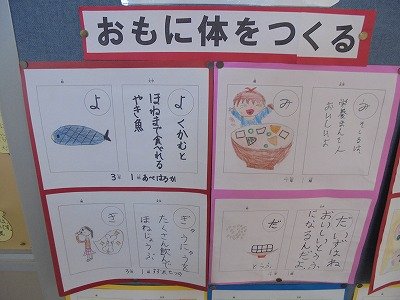 おもに体をつくる
よ
よくかむと
ほねまで食べれる
やき魚
3年1組
み
みそしるは、
栄養まんてん
おいしいよ
4年1組
ぎ
ぎゅうにゅうを
たくさん飲んで
ほねじょうぶ
3年1組
だ
だいずはね
おいしいとうふ
になるんだよ
とうふ